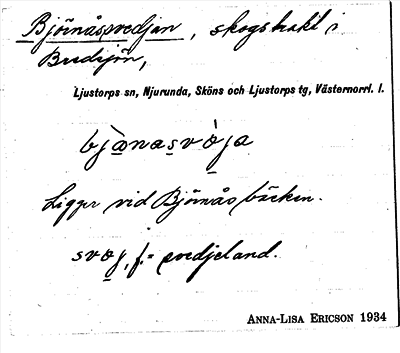 Björnåsvedjan, skogstrakt i
Bredsjön,
Ljustorps sn, Njurunda, Sköns och Ljustorps tg, Västernorrl. l.
bjὰ̱nas̱vὸ̱ja
Ligger vid Björnåsbäcken.
svo̱j, f. = svedjeland.
ANNA-LISA ERICSON 1934